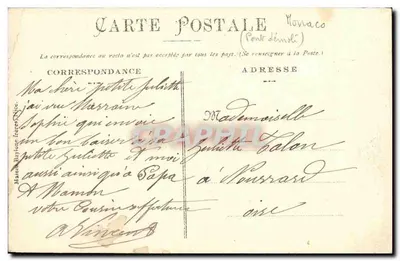 CARTE POSTALE
Monaco
(Pont démoli)
La correspondance au recto n'est pas acceptée par tous les pays. (Se renseigner à la Poste)
CORRESPONDANCE
ADRESSE
Ma chère petite Juliette
j'ai vu Marraine
Sophie qui envoie
un bon baiser à sa
petite Juliette et moi
aussi ainsi qu'à Papa
& Maman
votre Cousin affectueux
Mademoiselle
Juliette Talon
à
oise
CARTORUM